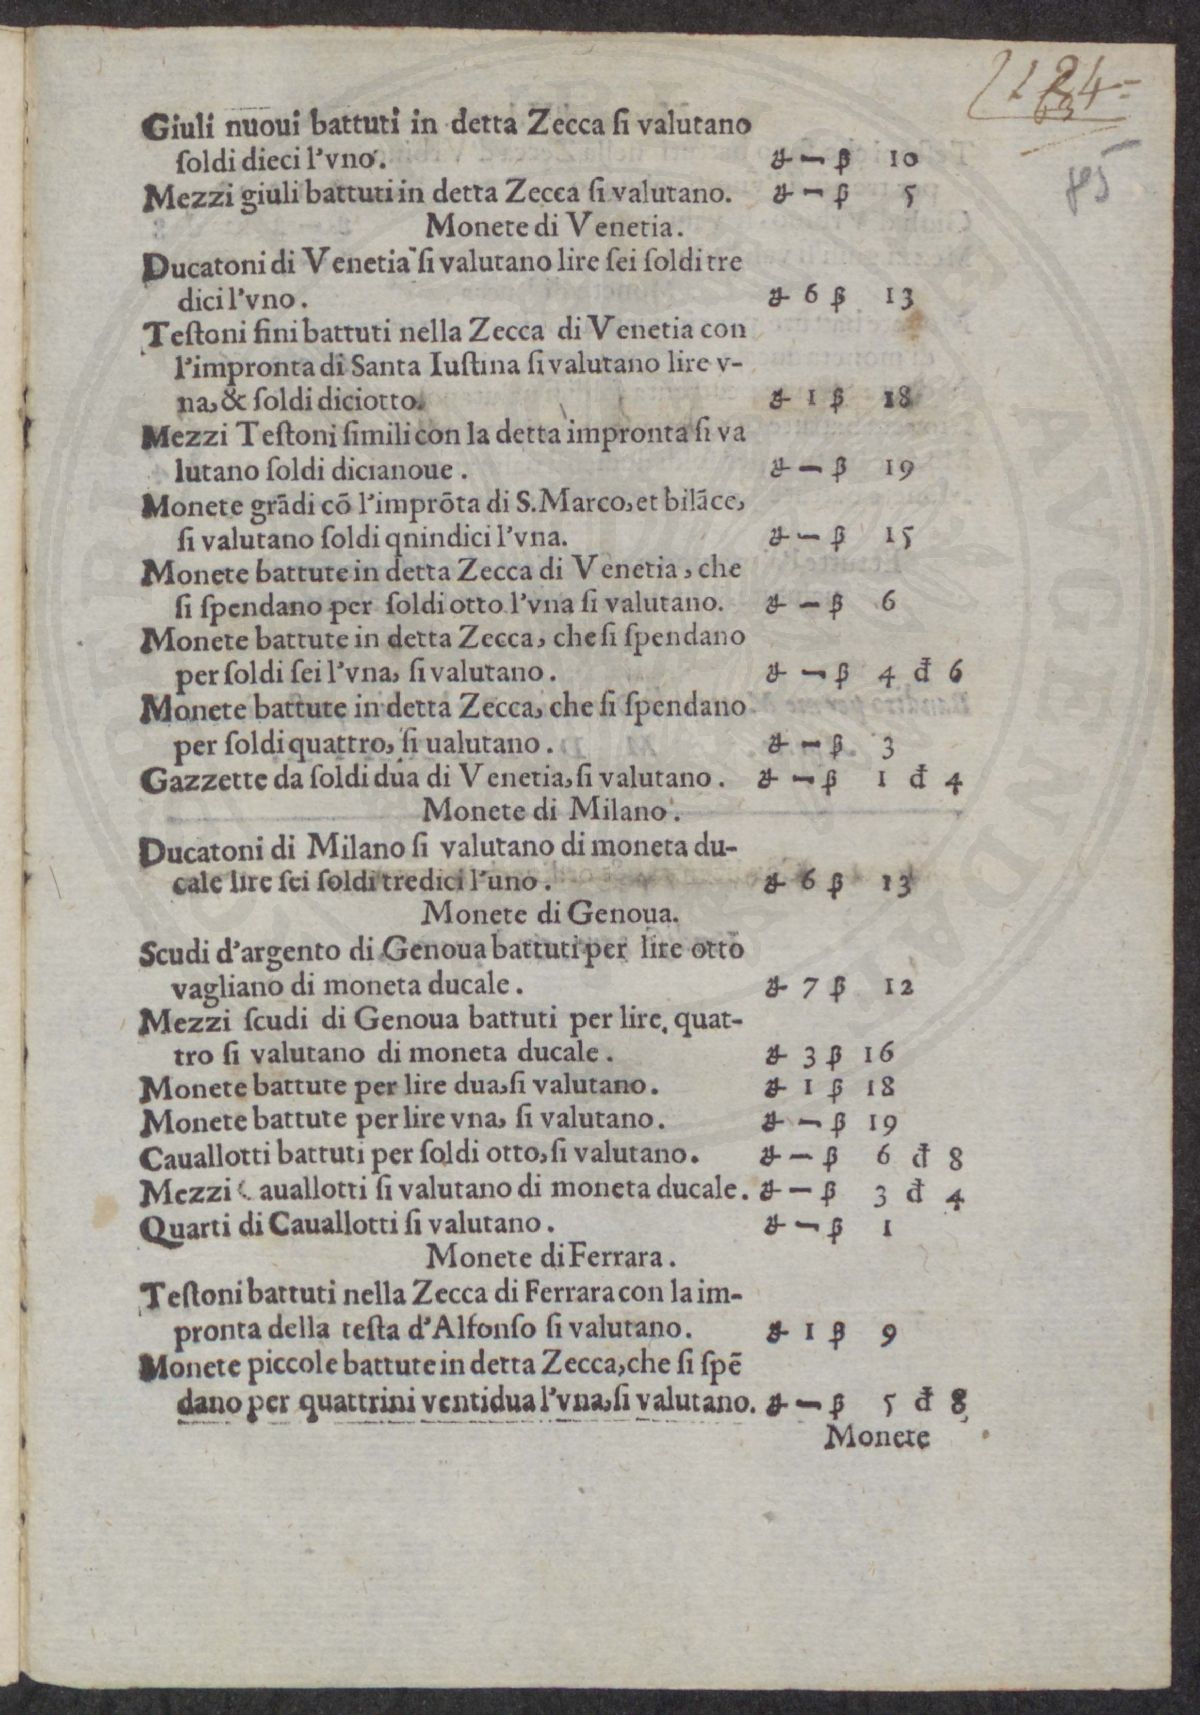 184
85
Giuli nuoui battuti in detta Zecca ſi valutano
ſoldi dieci l'vno. ₰ — β 10
Mezzi giuli battuti in detta Zecca ſi valutano. ₰ — β 5
Monete di Venetia.
Ducatoni di Venetia ſi valutano lire ſei ſoldi tre
dici l'vno. ₰ 6 β 13
Teſtoni fini battuti nella Zecca di Venetia con
l'impronta di Santa Iuſtina ſi valutano lire v-
na, & ſoldi diciotto. ₰ 1 β 18
Mezzi Teſtoni ſimili con la detta impronta ſi va
lutano ſoldi dicianoue. ₰ — β 19
Monete grādi cō l'imprōta di S. Marco, et bilāce,
ſi valutano ſoldi qnindici l'vna. ₰ — β 15
Monete battute in detta Zecca di Venetia, che
ſi ſpendano per ſoldi otto l'vna ſi valutano. ₰ — β 6
Monete battute in detta Zecca, che ſi ſpendano
per ſoldi ſei l'vna, ſi valutano. ₰ — β 4 đ 6
Monete battute in detta Zecca, che ſi ſpendano
per ſoldi quattro, ſi ualutano. ₰ — β 3
Gazzette da ſoldi dua di Venetia, ſi valutano. ₰ — β 1 đ 4
Monete di Milano.
Ducatoni di Milano ſi valutano di moneta du-
cale lire ſei ſoldi tredici l'uno. ₰ 6 β 13
Monete di Genoua.
Scudi d'argento di Genoua battuti per lire otto
vagliano di moneta ducale. ₰ 7 β 12
Mezzi ſcudi di Genoua battuti per lire quat-
tro ſi valutano di moneta ducale. ₰ 3 β 16
Monete battute per lire dua, ſi valutano. ₰ 1 β 18
Monete battute per lire vna, ſi valutano. ₰ — β 19
Cauallotti battuti per ſoldi otto, ſi valutano. ₰ — β 6 đ 8
Mezzi Cauallotti ſi valutano di moneta ducale. ₰ — β 3 đ 4
Quarti di Cauallotti ſi valutano. ₰ — β 1
Monete di Ferrara.
Teſtoni battuti nella Zecca di Ferrara con la im-
pronta della teſta d'Alfonſo ſi valutano. ₰ 1 β 9
Monete piccole battute in detta Zecca, che ſi ſpē
dano per quattrini ventidua l'vna, ſi valutano. ₰ — β 5 đ 8
Monete